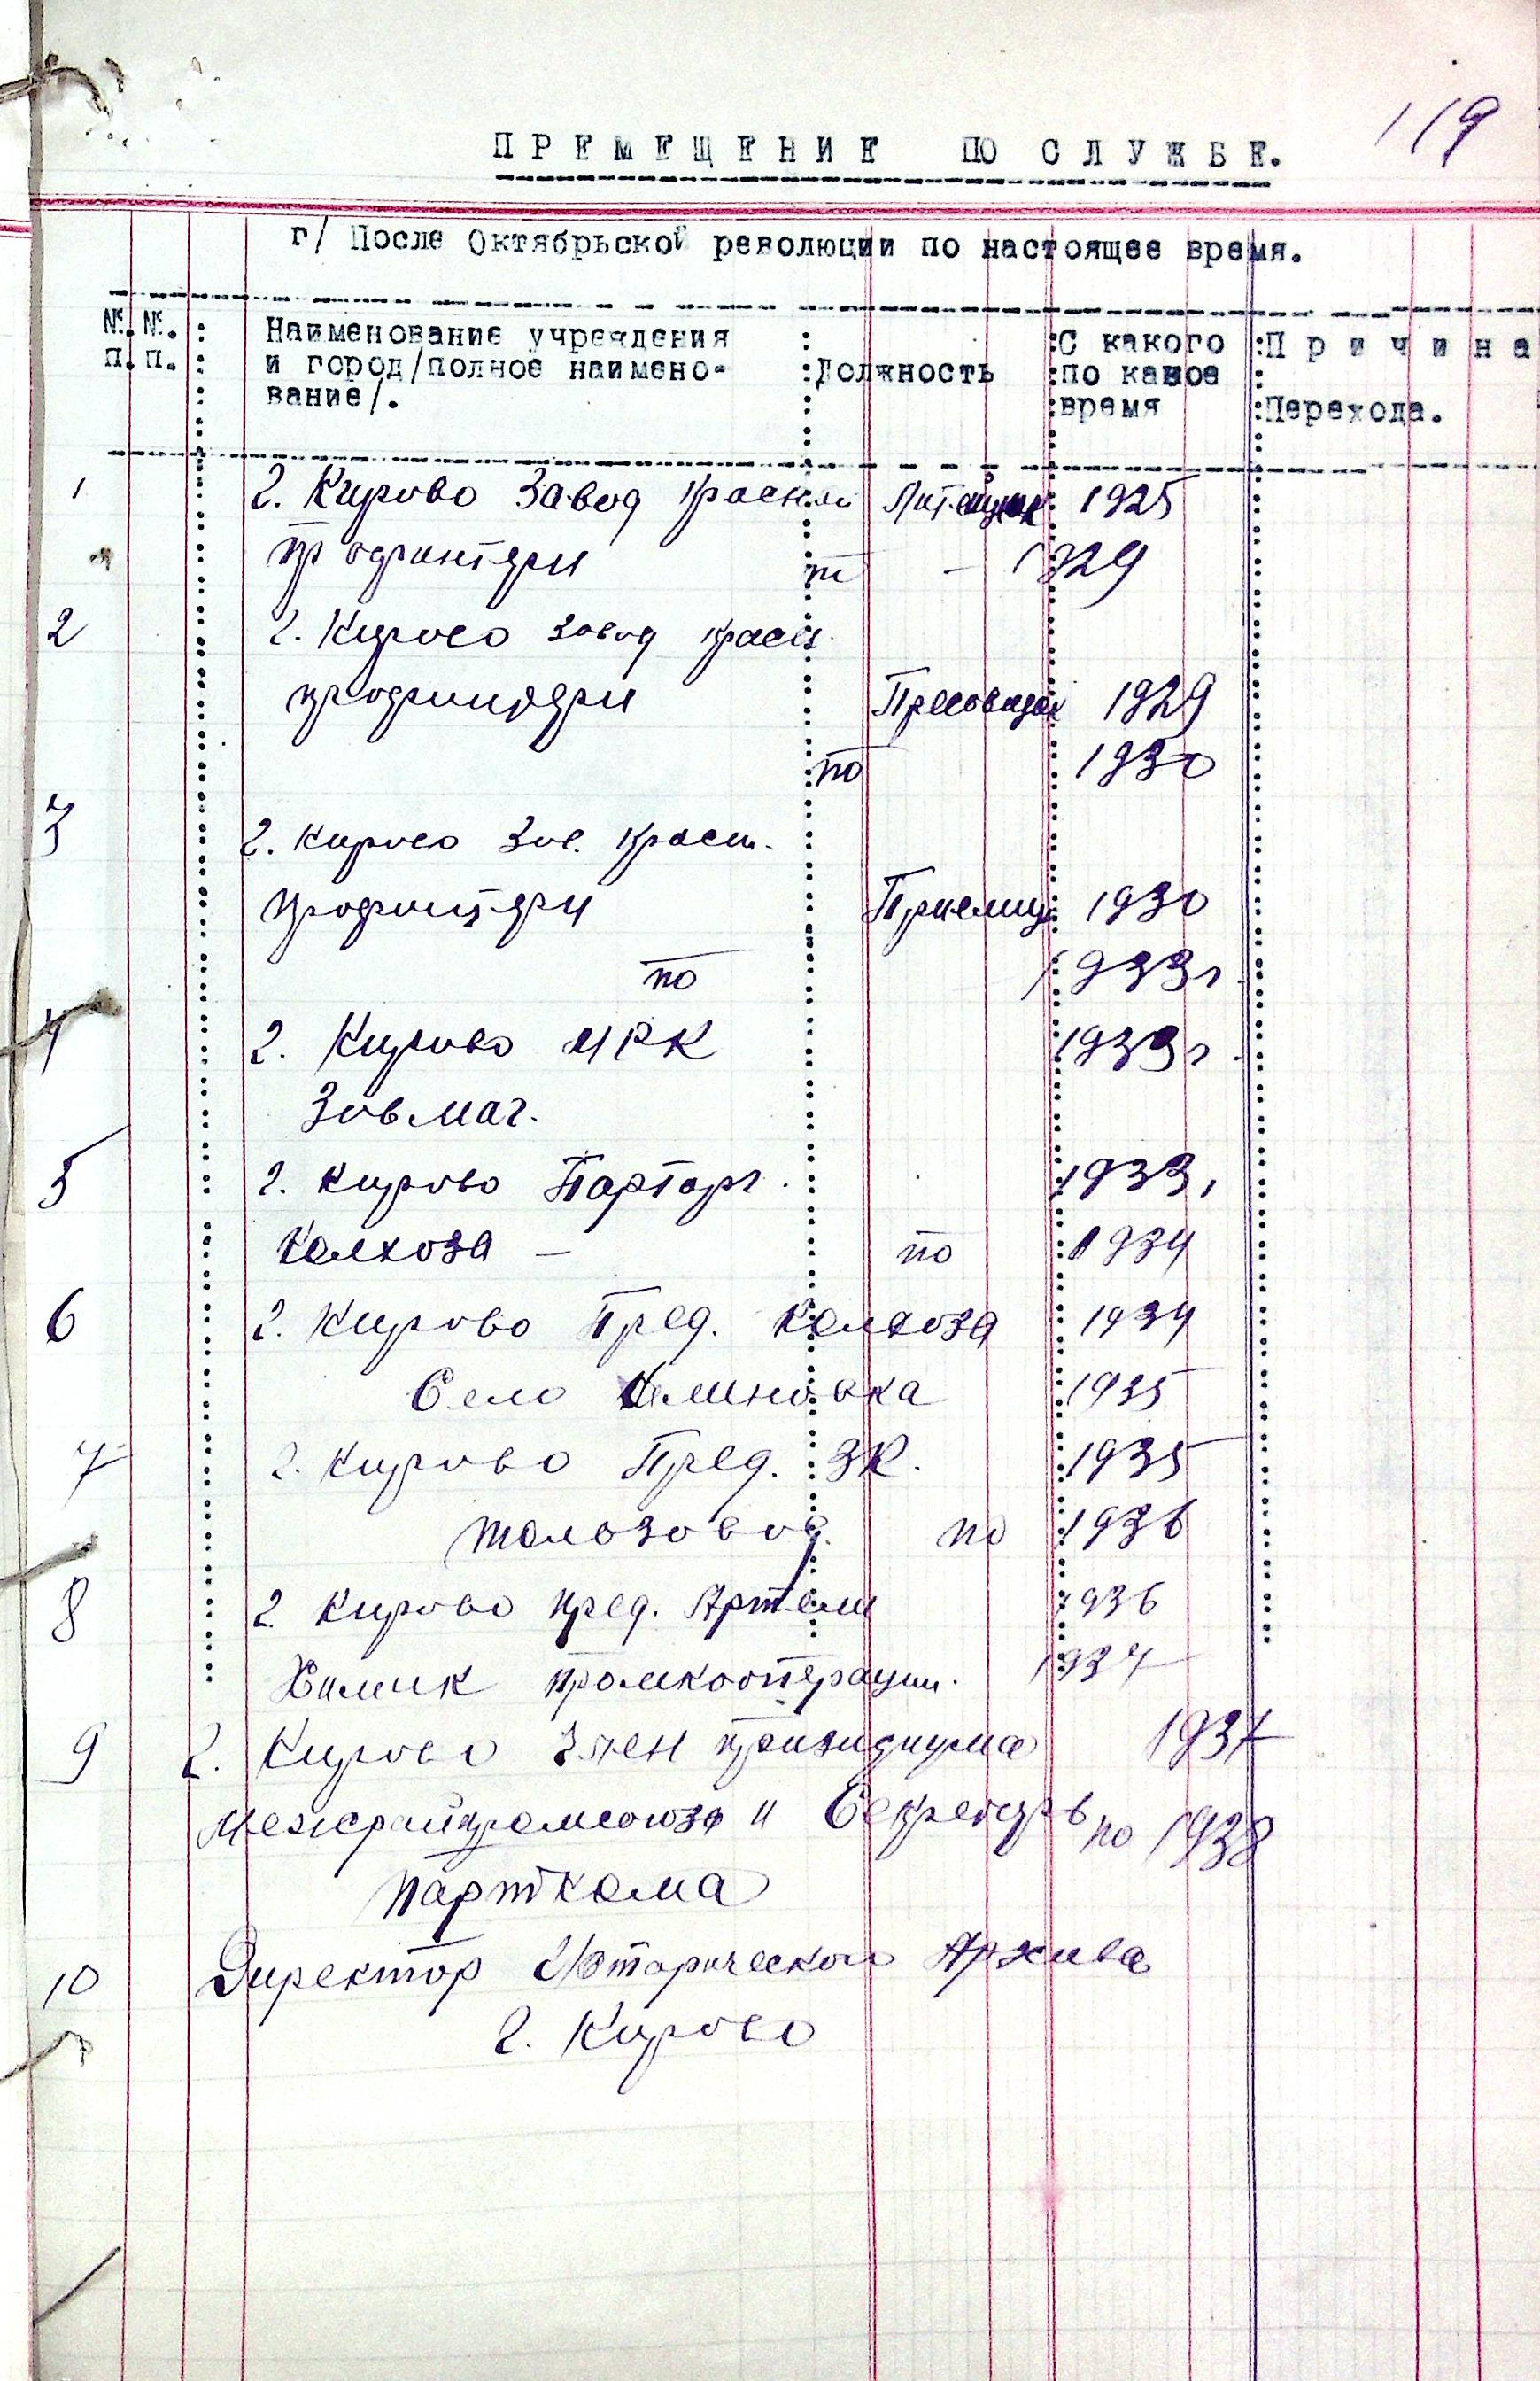 119
ПРЕМЕЩЕНИЕ ПО СЛУЖБЕ.
г/ После Октябрьской революции по настоящее время.
№.№. п.п. Наименование учреждения и город/полное наимено- вание/. Должность С какого по какое время Причина Перехода.
1 г. Кирово Завод Красный Литейщик 1925
профинтерн по - 1929
2 г. Кирово завод красн.
профинтерн Пресовщик 1929
по 1930
3 г. Кирово Зав. Красн.
профинтерн Приемщ. 1930
по 1933 г.
4 г. Кирово ЦРК 1933 г.
Завмаг.
5 г. Кирово Парторг. 1933,
Колхоза — по 1934
6 г. Кирово Пред. Колхоза 1934
Село 1935
7 г. Кирово Пред. ЗК. 1935
по 1936
8 г. Кирово пред. Артели 1936
Химик промкооперации. 1937
9 г. Кирово Член призидиума 1937
Межрайпромсоюза и Секретарь по 1938
парткома
10 Директор Исторического Архива
г. Кирово